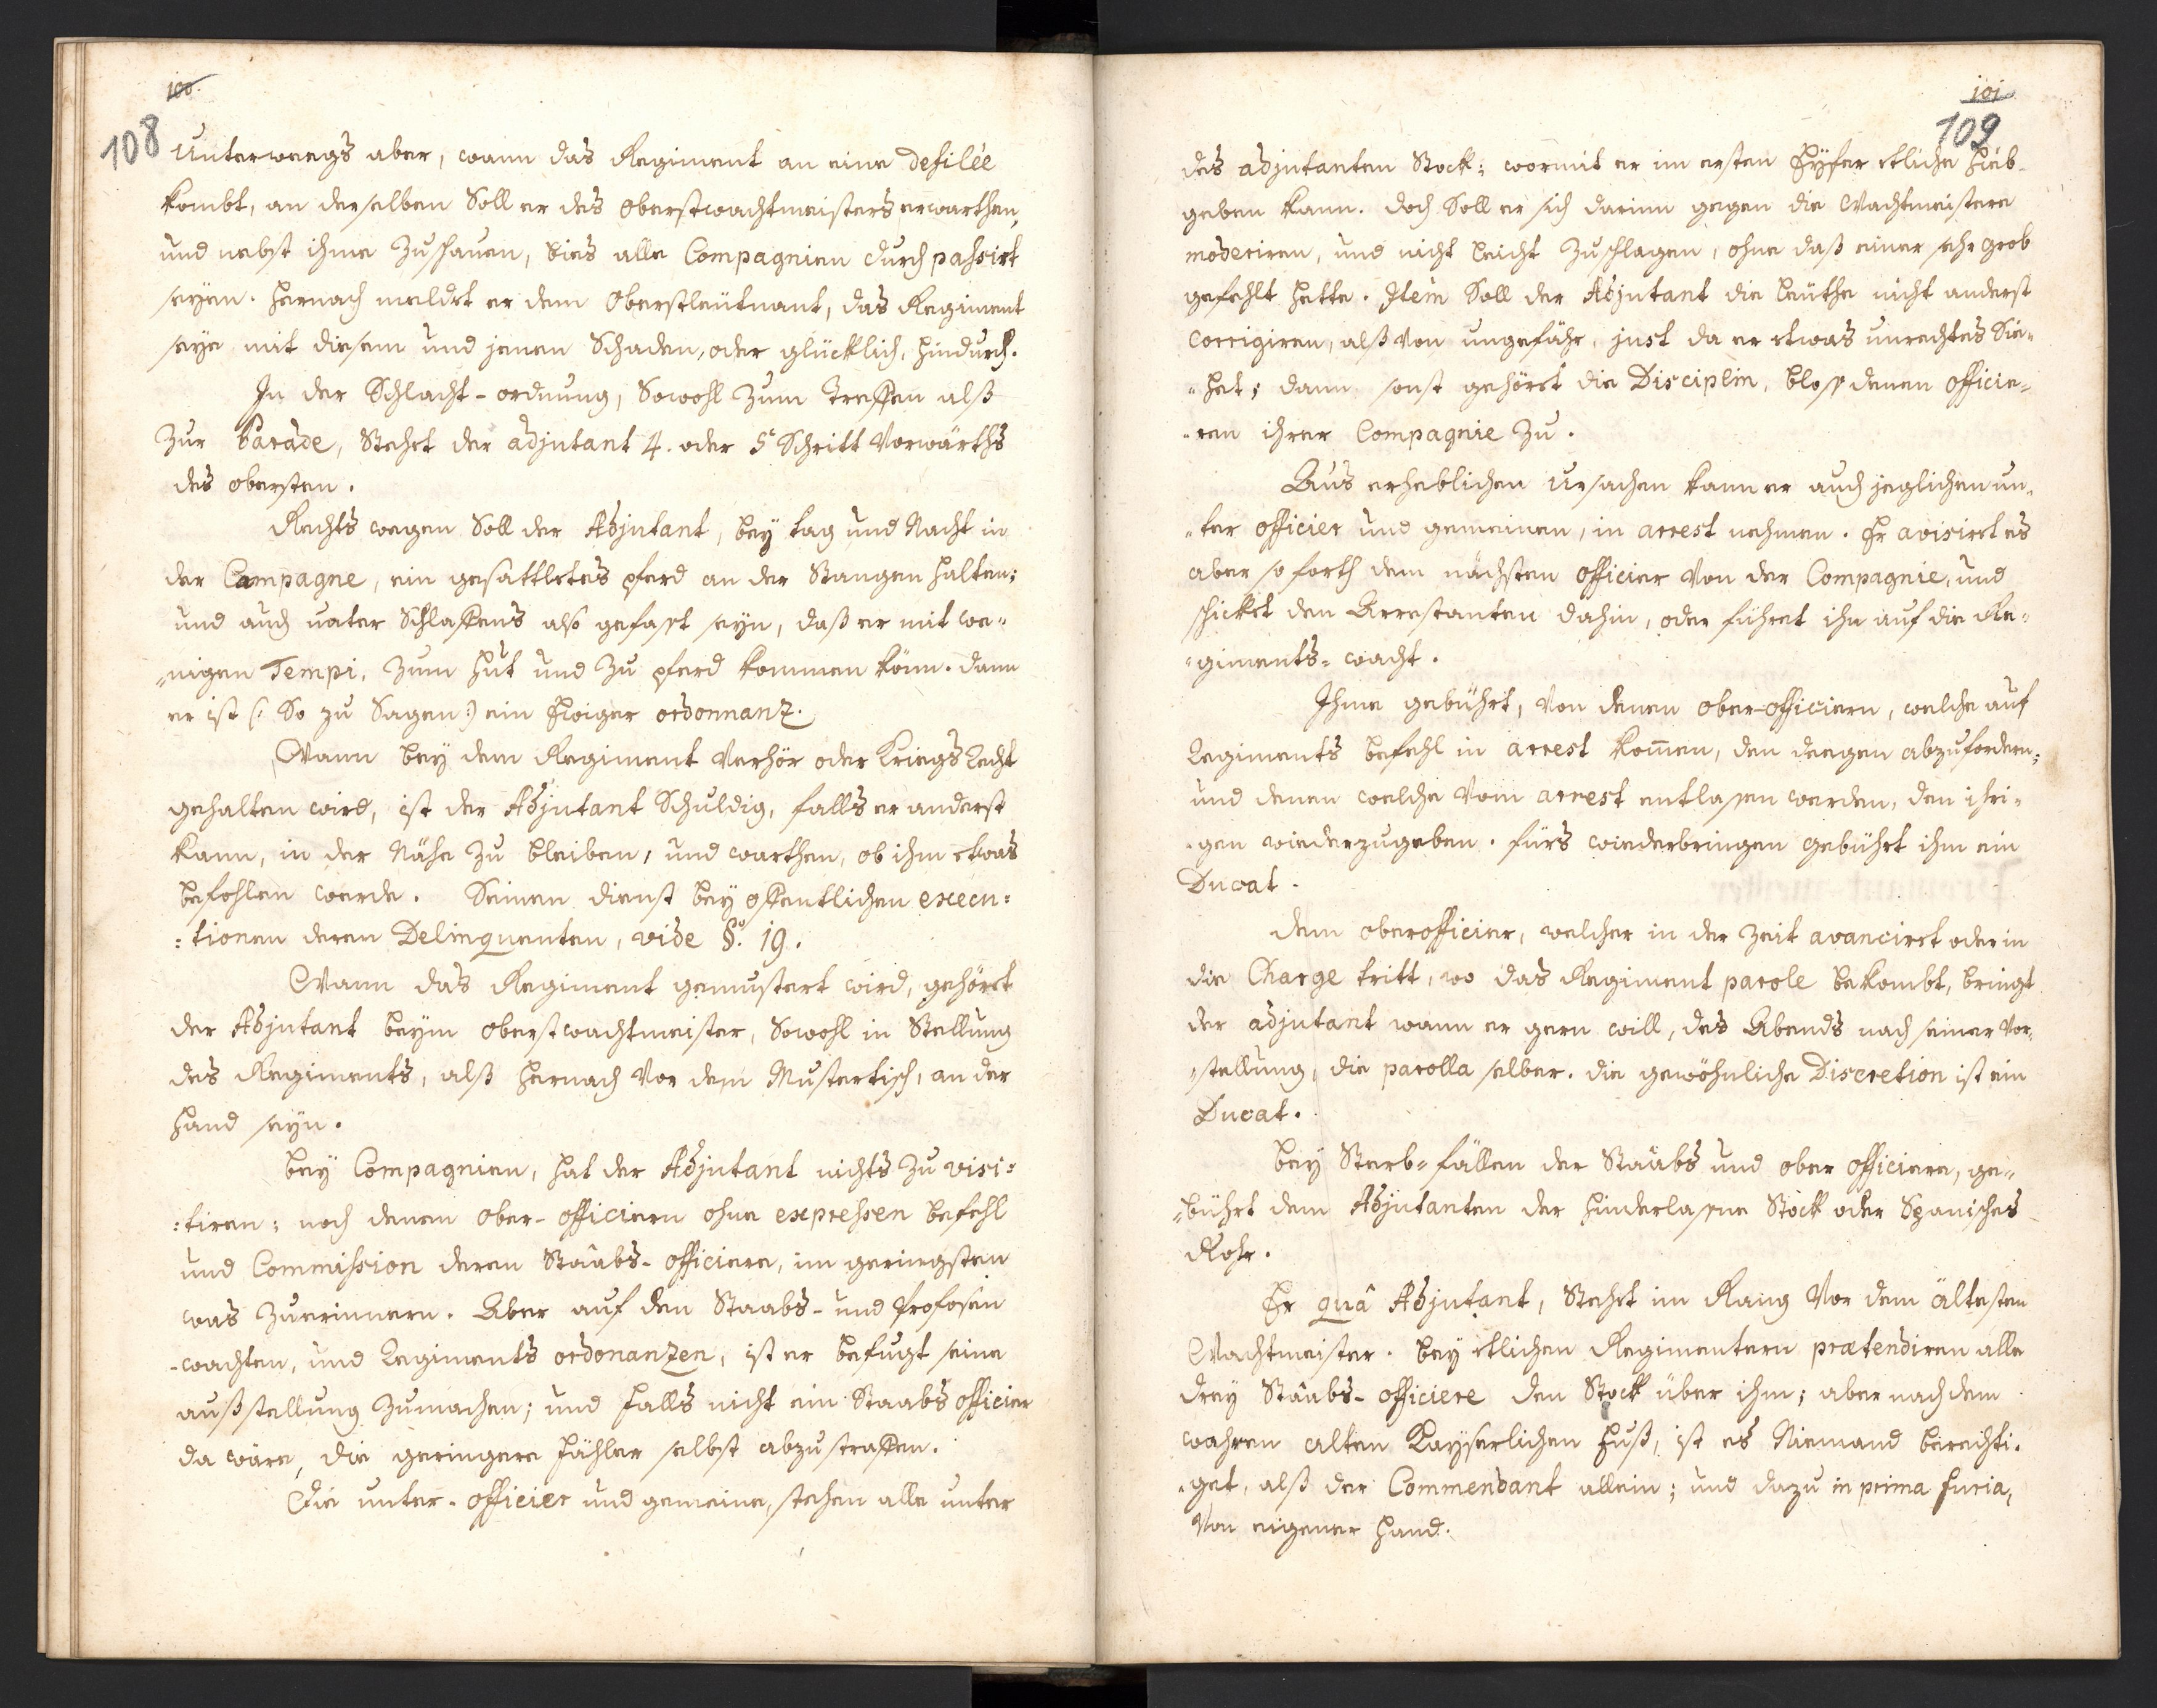 100.
108
Unterweegs aber, wann das Regiment an eine defilée
kombt, an derselben Soll er des Oberstwachtmeisters erwarthen,
und nebst ihme Zuschauen, bies alle Compagnien durch passirt
seyen. Hernach meldet er dem Oberstleütnant, das Regiment
seye mit diesem und jenen Schaden, oder glücklich, hindurch.
In der Schlacht-ordnung, Sowohl Zum Treffen alß
Zur Parade, Stehet der adjutant 4. oder 5 Schritt Vorwärths
des obersten.
Rechts wegen Soll der Adjutant, bey tag und Nacht in
der Campagne, ein gesattletes pferd an der Stangen halten;
und auch unter Schlaffens also gefast seyn, daß er mit we„
„nigen Tempi, Zum Hut und Zu pferd kommen könn. dann
er ist (: So zu Sagen:) ein Ewiger ordonnanz.
Wann bey dem Regiment Verhör oder Kriegs Recht
gehalten wird, ist der Adjutant Schuldig, falls er anderst
kann, in der Nähe Zu bleiben, und warthen, ob ihm etwas
befohlen werde. Seinen dienst bey offentlichen execu:
:tionen deren Delinquenten, vide §.º 19.
Wann das Regiment gemustert wird, gehöret
der Adjutant beym Oberstwachtmeister, Sowohl in Stellung
des Regiments, alß hernach Vor dem Mustertisch, an der
Hand seyn.
Bey Compagnien, hat der Adjutant nichts Zu visi:
:tiren; noch denen ober-officiern ohne expressen befehl
und Commission deren Staabs-officiere, im geringsten
was Zuerinnern. Aber auf den Staabs- und Profosen
-wachten, und Regiments ordonanzen, ist er befugt seine
außstellung Zumachen; und falls nicht ein Staabs officier
da wäre, die geringere Fähler selbst abzustraffen.
Die unter-officier und gemeine, stehen alle unter
101
109
des adjutanten Stock; wormit er im ersten Eyfer etliche Hieb
geben kann. doch Soll er sich darinn gegen die Wachtmeistere
moderiren, und nicht leicht Zuschlagen, ohne daß einer sehr grob
gefehlt hette. Item Soll der Adjutant die leüthe nicht anderst
corrigiren, alß von ungefähr, just da er etwas unrechtes Sie„
„het; dann sonst gehöret die Disciplin, bloss denen officie„
„ren ihrer Compagnie Zu.
Aus erheblichen Ursachen kann er auch jeglichen un„
„ter officier und gemeinen, in arrest nehmen. Er avisiret es
aber so forth dem nächsten officier Von der Compagnie, und
schicket den Arrestanten dahin, oder führet ihn auf die Re„
„giments-wacht.
Ihme gebührt, Von denen ober-officiern, welche auf
Regiments befehl in arrest kom̄en, den deegen abzufordern;
und denen welche Vom arrest entlassen werden, den ihri„
„gen wiederzugeben. fürs wiederbringen gebührt ihm ein
Ducat.
dem oberofficier, welcher in der Zeit avanciret oder in
die Charge tritt, wo das Regiment parole bekombt, bringt
der adjutant wann er gern will, des Abends nach seiner Vor„
„stellung, die parolla selber. die gewöhnliche Discretion ist ein
Ducat.
Bey Sterb-fällen der Staabs und ober officiere, ge„
„bührt dem Adjutanten der hinderlassene Stock oder Spanisches
Rohr.
Er quâ Adjutant, Stehet im Rang Vor dem ältesten
Wachtmeister. bey etlichen Regimentern prætendiren alle
drey Staabs-officiere den Stock über ihm; aber nach dem
wahren alten Kayserlichen Fuß, ist es Niemand berechti„
„get, alß der Commendant allein; und dazu in prima furia,
Von eigener Hand.